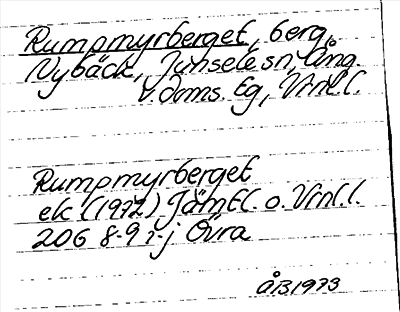 Rumpmyrberget, berg,
Nybäck, Junsele sn, Ång.
v. Orns. tg, Vrnl.l.
Rumpmyrberget
ek (1972) Jämtl. o. Vrnl.l.
206 8-9 i-j Övra
ÅB 1973